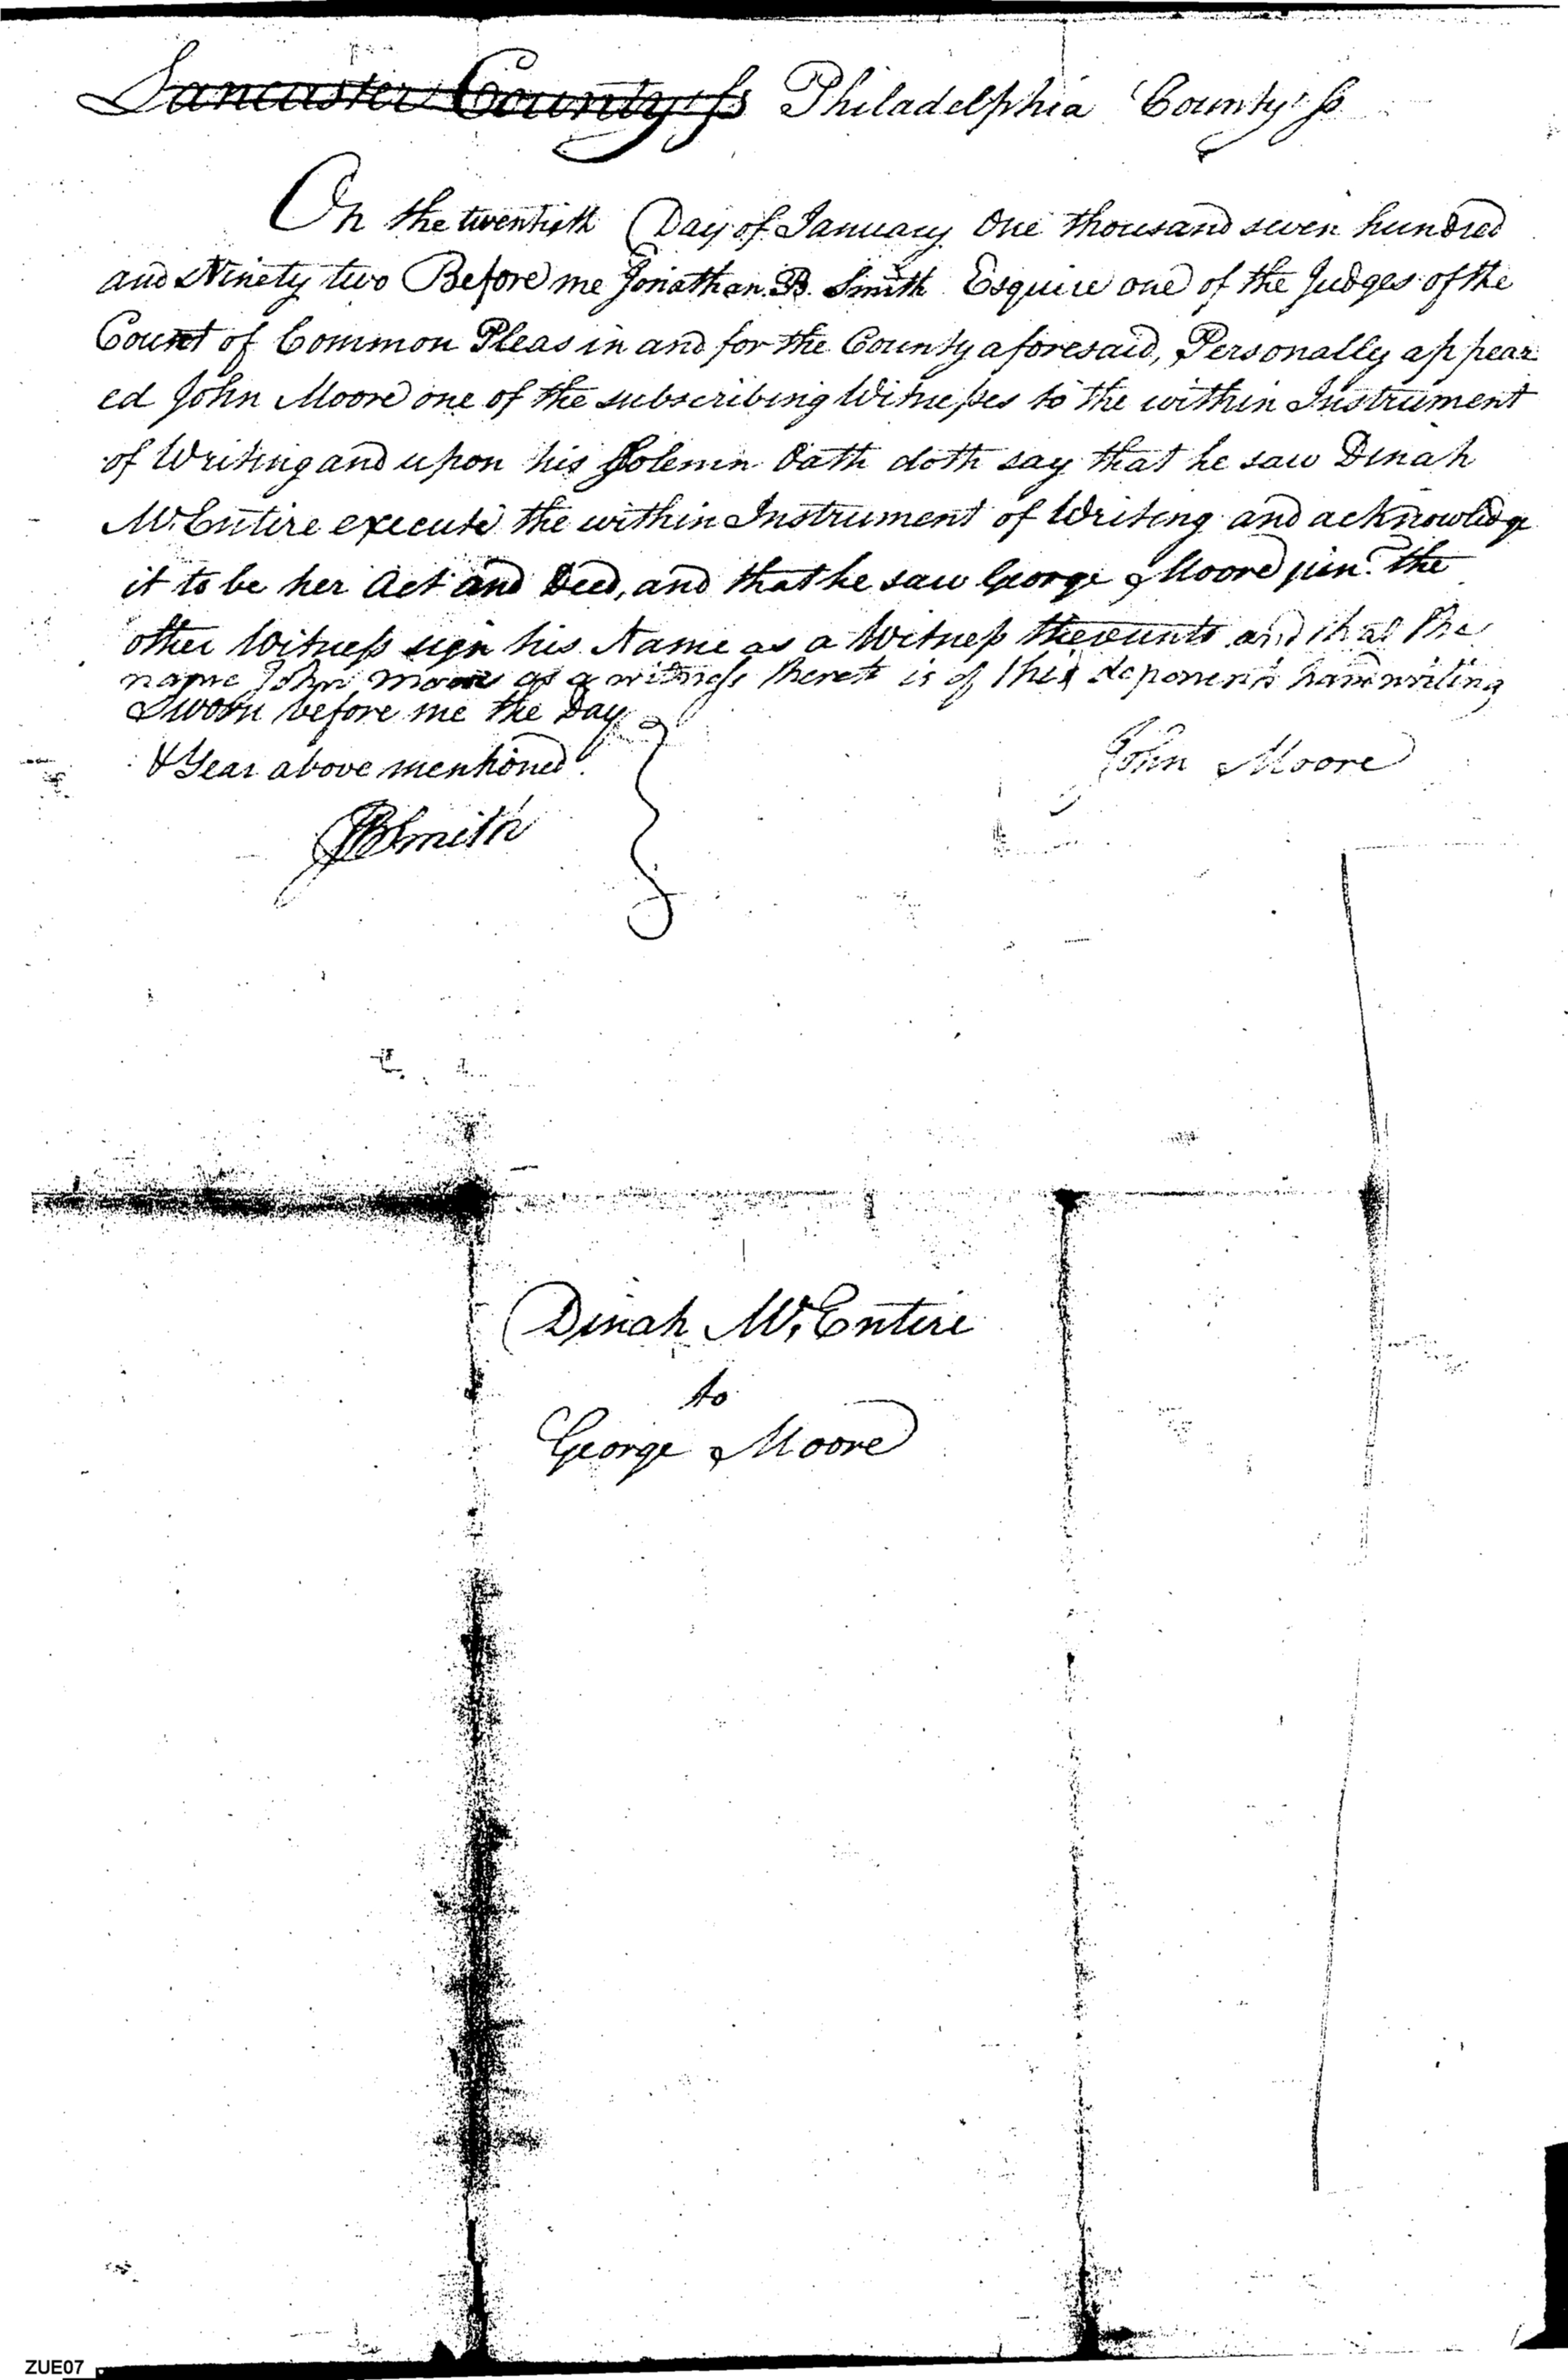 Lancaster County ss Philadelphia County ss
On the twentieth Day of January One thousand seven hundred
and Ninety two Before me Jonathan B. Smith Esquire one of the Judges of the
Court of Common Pleas in and for the County aforesaid, Personally appear
ed John Moore one of the subscribing Witnesses to the within Instrument
of Writing and upon his Solemn Oath doth say that he saw Dinah
McEntire execute the within Instrument of Writing and acknowledge
it to be her Act and Deed, and that he saw George Moore junr. the
other Witness sign his Name as a Witness thereunto and that the
name John Moore as a witness thereto is of this deponent's handwriting
Sworn before me the Day
& Year above mentioned.
John Moore
JBSmith
Dinah McEntire
to
George Moore
ZUE07